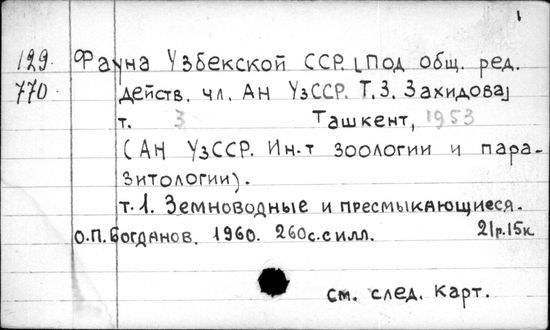 1
129 Фауна Узбекской ССР. [Под общ. ред.
770 действ. чл. АН УзССР. Т.З. Захидова]
т. 3 Ташкент, 1953
(АН УзССР. Ин-т зоологии и пара-
зитологии).
т.1. Земноводные и пресмыкающиеся.
О.П.Богданов. 1960. 260с. с илл. 21р.15к
см. след. карт.